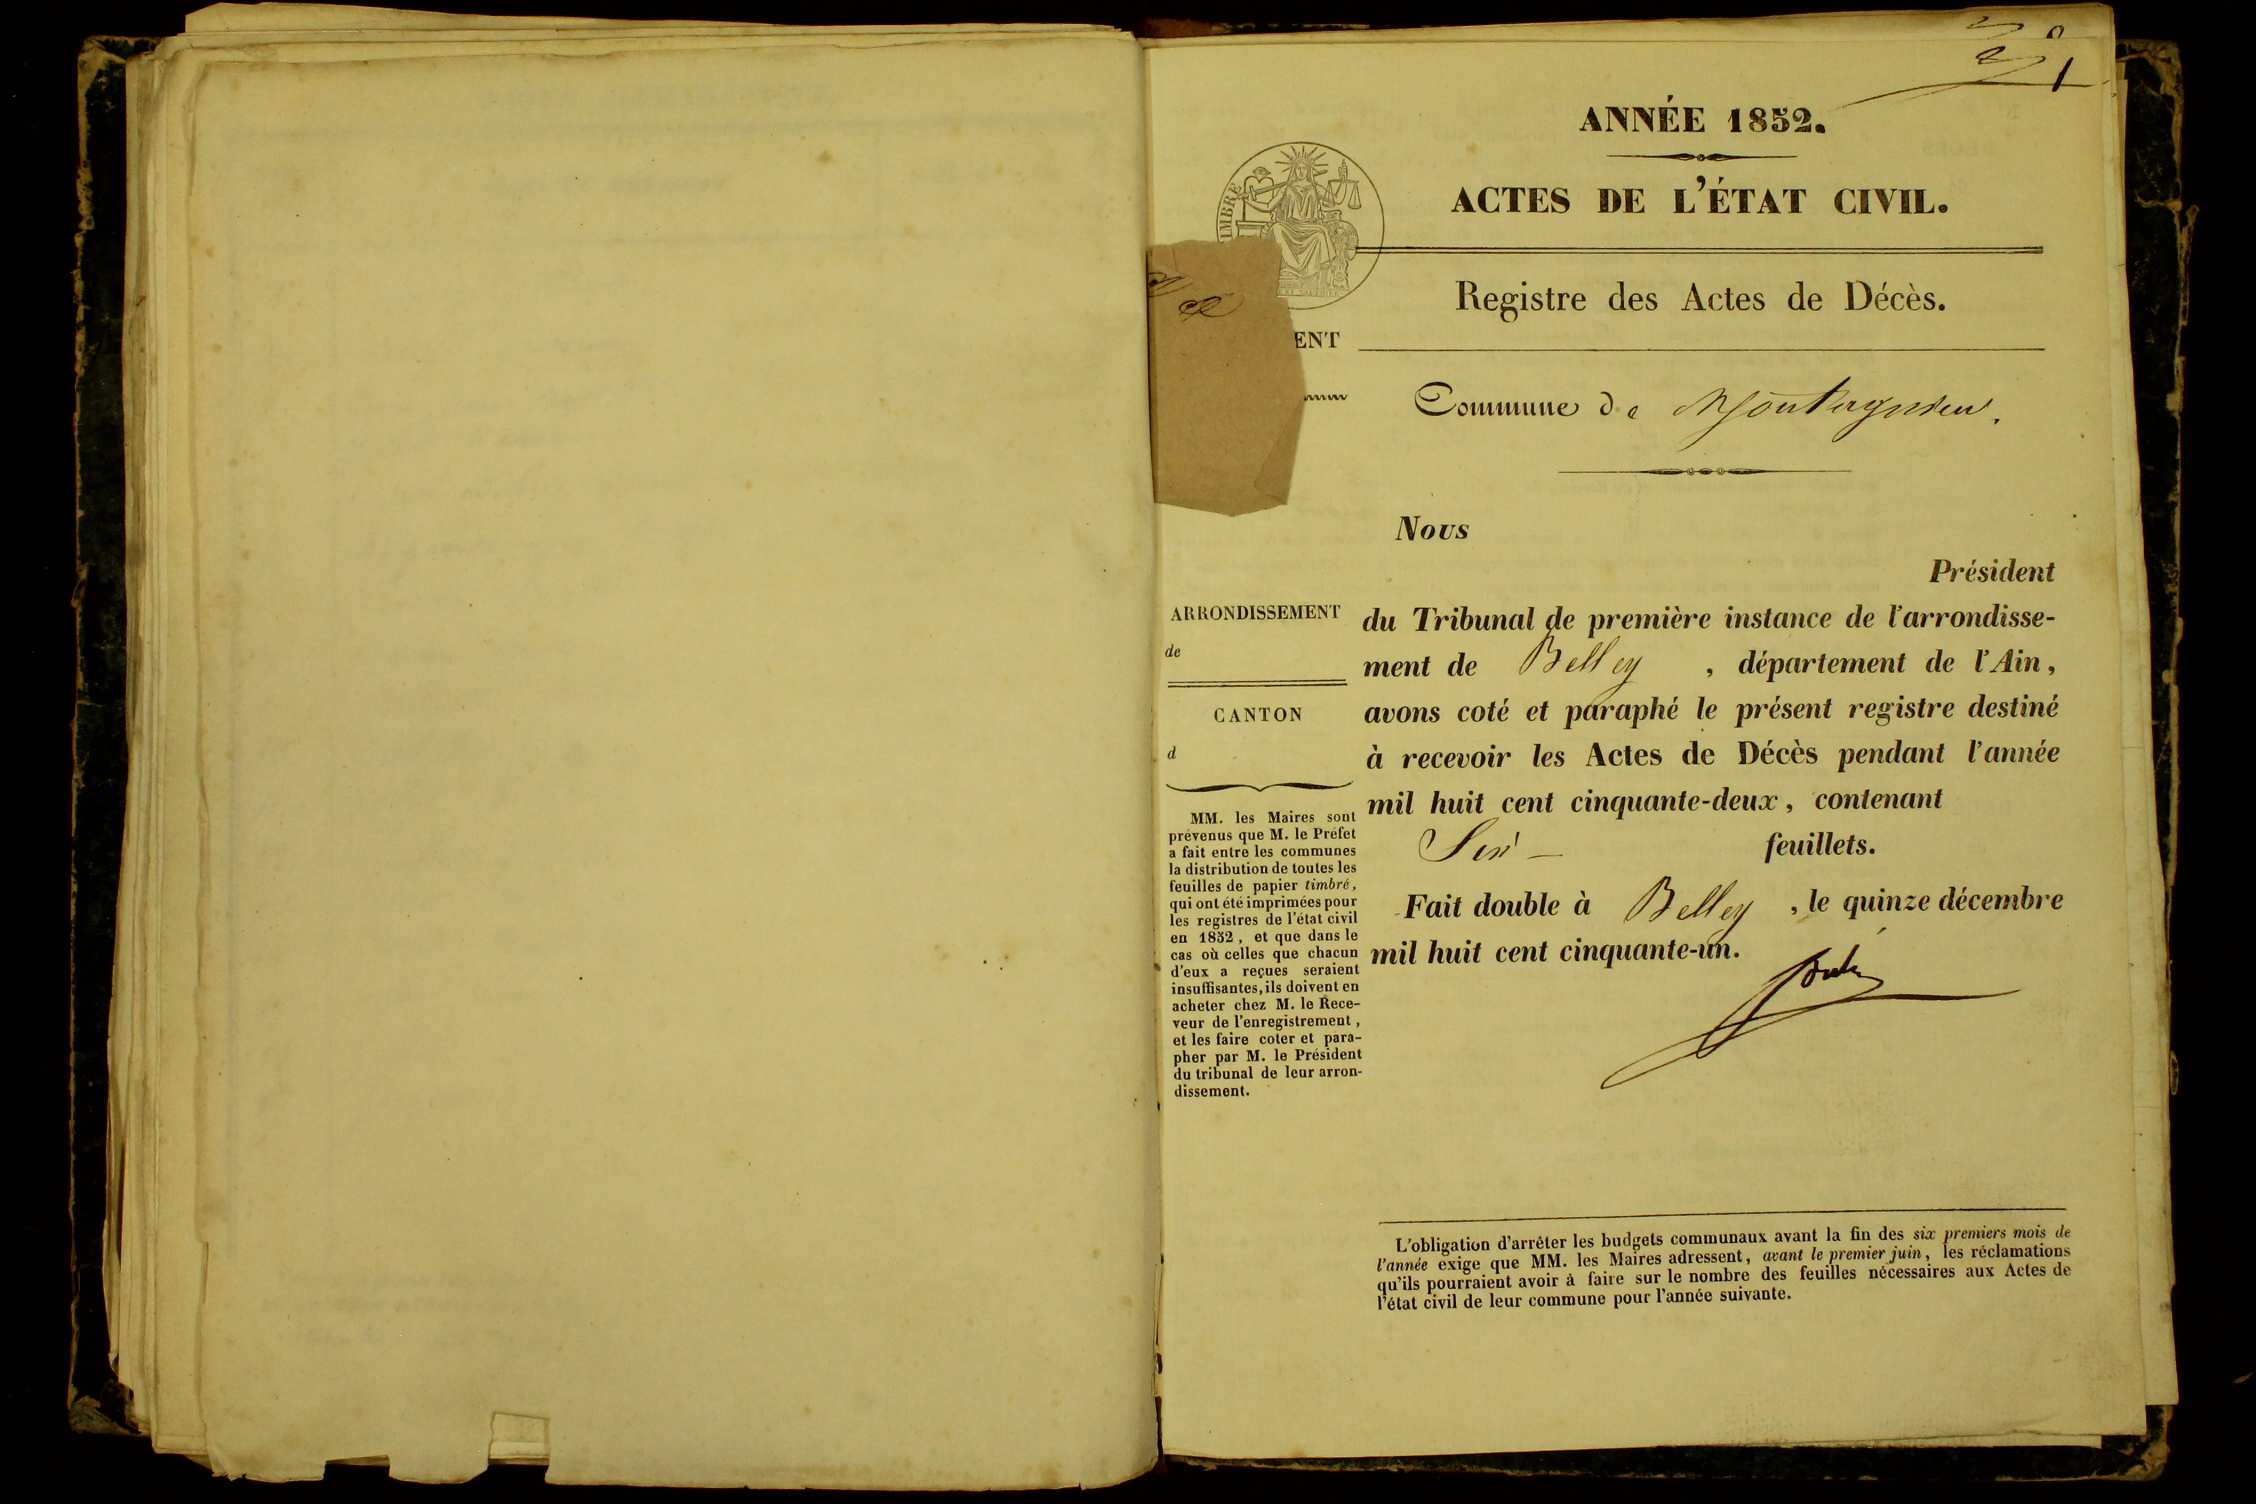 1
ANNÉE 1852.
ACTES DE L'ÉTAT CIVIL.
TIMBRE
Registre des Actes de Décès.
ENT
Commune de Montagnieu.
Nous
Président
du Tribunal de première instance de l'arrondisse-
ment de Belley , département de l'Ain,
avons coté et paraphé le présent registre destiné
à recevoir les Actes de Décès pendant l'année
mil huit cent cinquante-deux, contenant
Six — feuillets.
Fait double à Belley , le quinze décembre
mil huit cent cinquante-un.
ARRONDISSEMENT
de
CANTON
d
MM. les Maires sont
prévenus que M. le Préfet
a fait entre les communes
la distribution de toutes les
feuilles de papier timbré,
qui ont été imprimées pour
les registres de l'état civil
en 1852, et que dans le
cas où celles que chacun
d'eux a reçues seraient
insuffisantes, ils doivent en
acheter chez M. le Rece-
veur de l'enregistrement,
et les faire coter et para-
pher par M. le Président
du tribunal de leur arron-
dissement.
L'obligation d'arrêter les budgets communaux avant la fin des six premiers mois de
l'année exige que MM. les Maires adressent, avant le premier juin, les réclamations
qu'ils pourraient avoir à faire sur le nombre des feuilles nécessaires aux Actes de
l'état civil de leur commune pour l'année suivante.